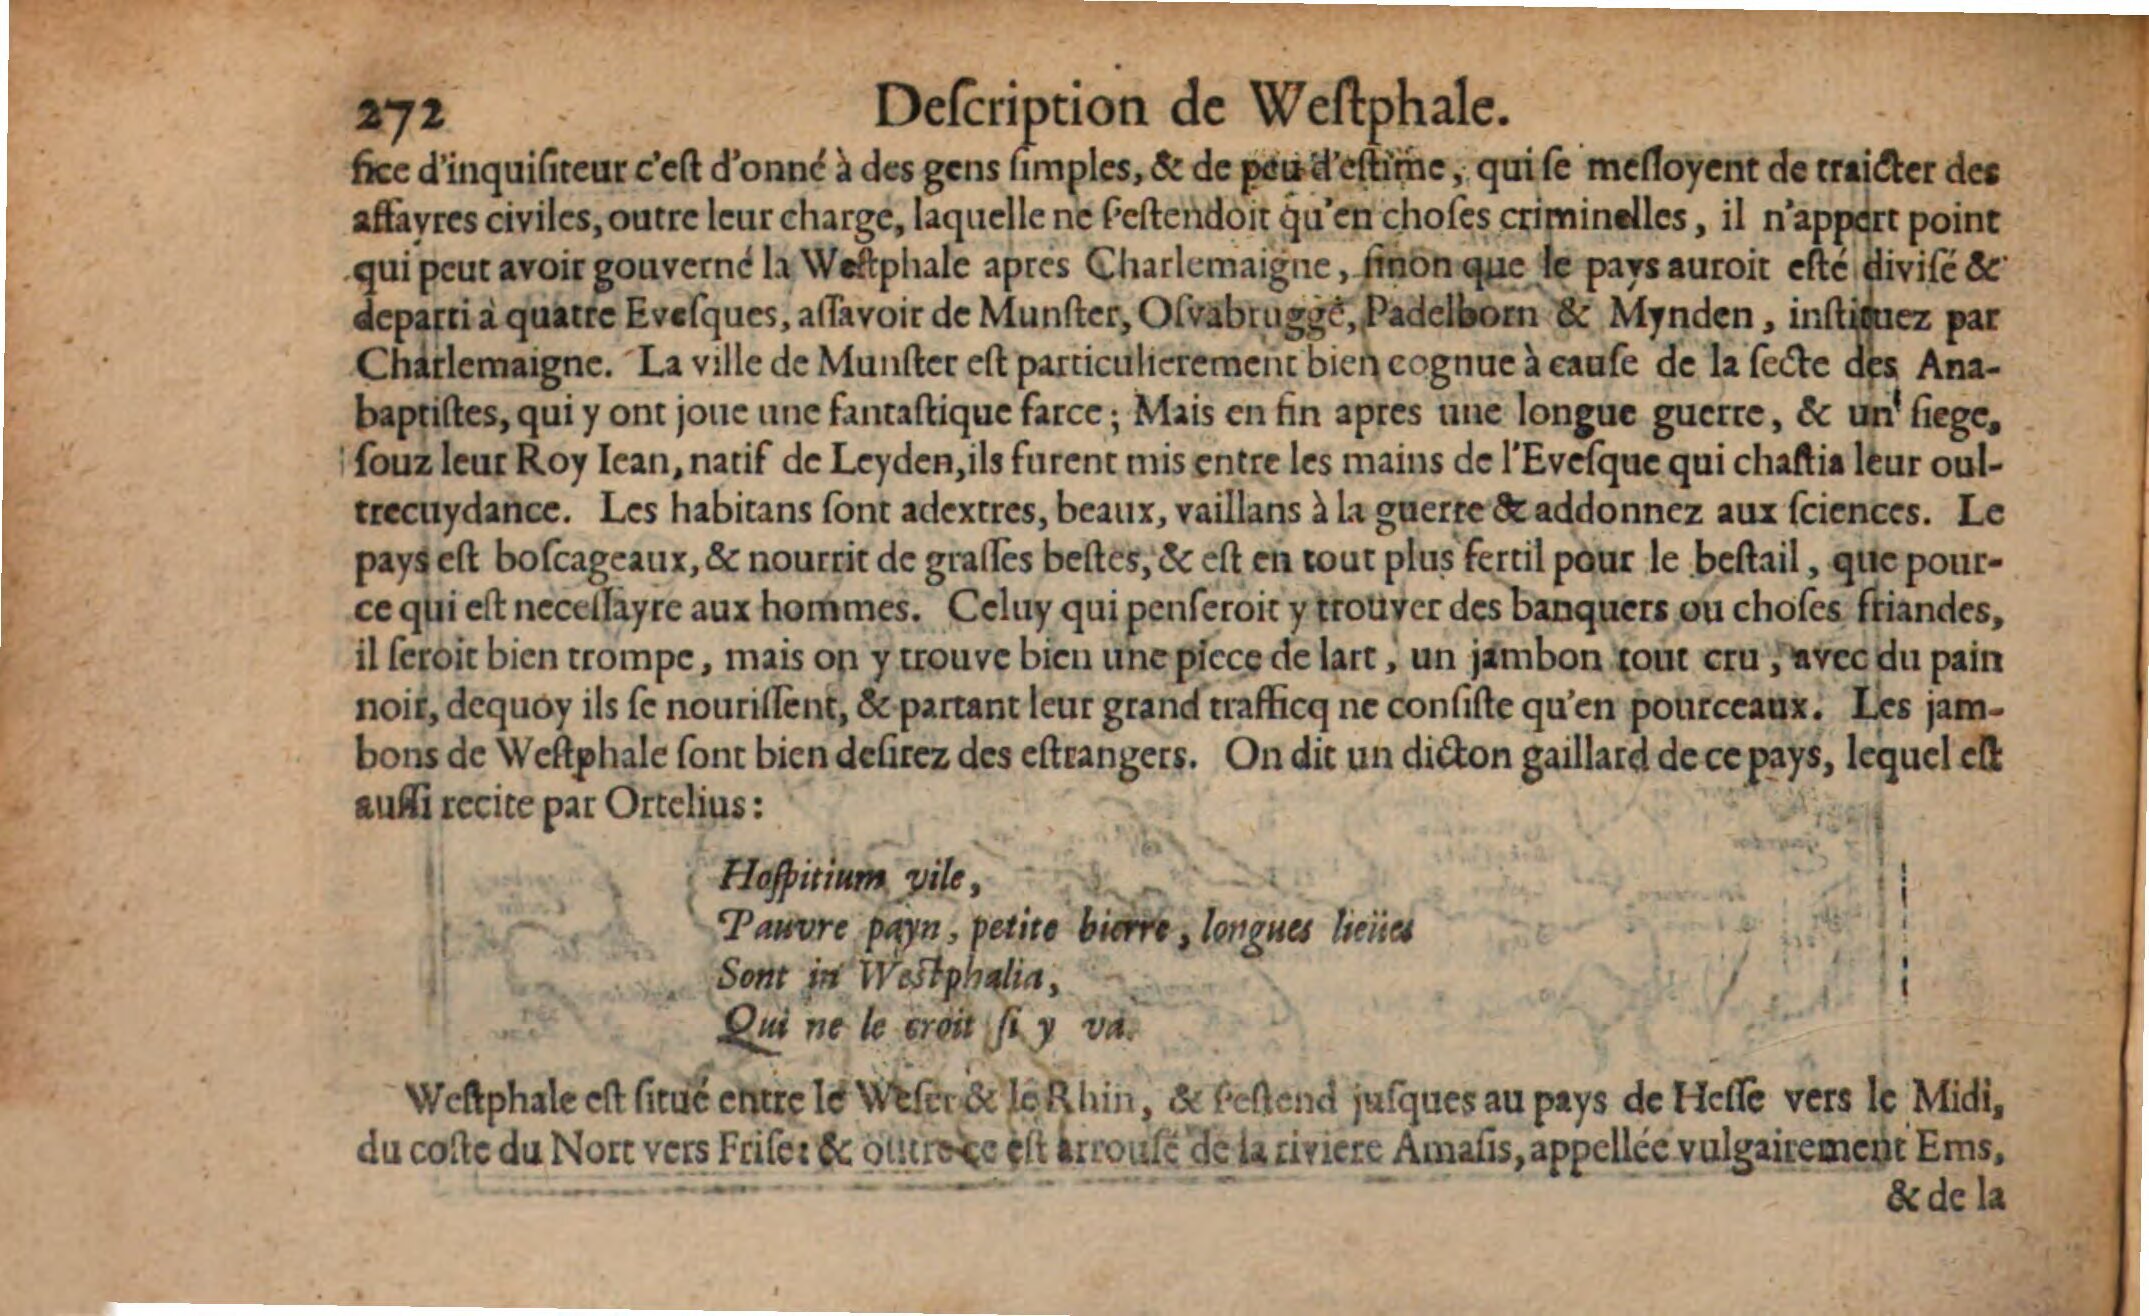 272 Deſcription de Weſtphale.
fice d'inquiſiteur c'eſt d'onné à des gens ſimples, & de peu d'eſtime, qui ſe meſloyent de traicter des
affayres civiles, outre leur charge, laquelle ne ſ'eſtendoit qu'en choſes criminelles, il n'appert point
qui peut avoir gouverné la Weſtphale apres Charlemaigne, ſinon que le pays auroit eſté diviſé &
departi à quatre Eveſques, aſſavoir de Munſter, Oſvabrugge, Padelborn & Mynden, inſtituez par
Charlemaigne. La ville de Munſter eſt particulierement bien cognue à cauſe de la ſecte des Ana-
baptiſtes, qui y ont joue une fantaſtique farce; Mais en fin apres une longue guerre, & un ſiege,
ſouz leur Roy Iean, natif de Leyden, ils furent mis entre les mains de l'Eveſque qui chaſtia leur oul-
trecuydance. Les habitans ſont adextres, beaux, vaillans à la guerre & addonnez aux ſciences. Le
pays eſt boſcageaux, & nourrit de graſſes beſtes, & eſt en tout plus fertil pour le beſtail, que pour-
ce qui eſt neceſſayre aux hommes. Celuy qui penſeroit y trouver des banquets ou choſes friandes,
il ſeroit bien trompe, mais on y trouve bien une piece de lart, un jambon tout cru, avec du pain
noir, dequoy ils ſe nouriſſent, & partant leur grand trafficq ne conſiſte qu'en pourceaux. Les jam-
bons de Weſtphale ſont bien deſirez des eſtrangers. On dit un dicton gaillard de ce pays, lequel eſt
auſſi recite par Ortelius:
Hoſpitium vile,
Pauvre payn, petite bierre, longues lieües
Sont in Weſtphalia,
Qui ne le croit ſi y va.
Weſtphale eſt ſitué entre le Weſer & le Rhin, & ſ'eſtend juſques au pays de Heſſe vers le Midi,
du coſte du Nort vers Friſe: & outre ce eſt arrouſé de la riviere Amaſis, appellée vulgairement Ems,
& de la